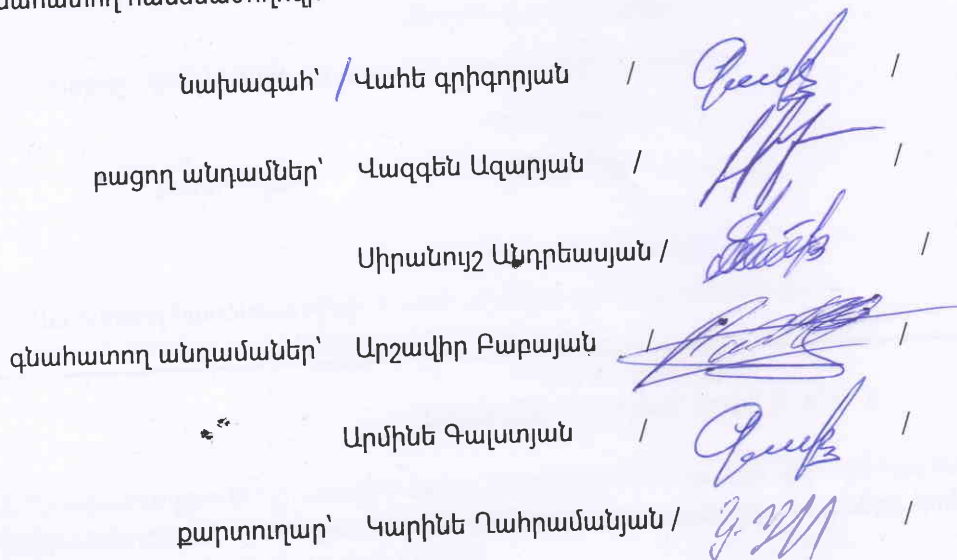 նախագահ՝ / Վահե գրիգորյան / /
բացող անդամներ՝ Վազգեն Ազարյան / /
Սիրանույշ Անդրեասյան / /
գնահատող անդամաներ՝ Արշավիր Բաբայան / /
Արմինե Գալստյան / /
քարտուղար՝ Կարինե Ղահրամանյան / /